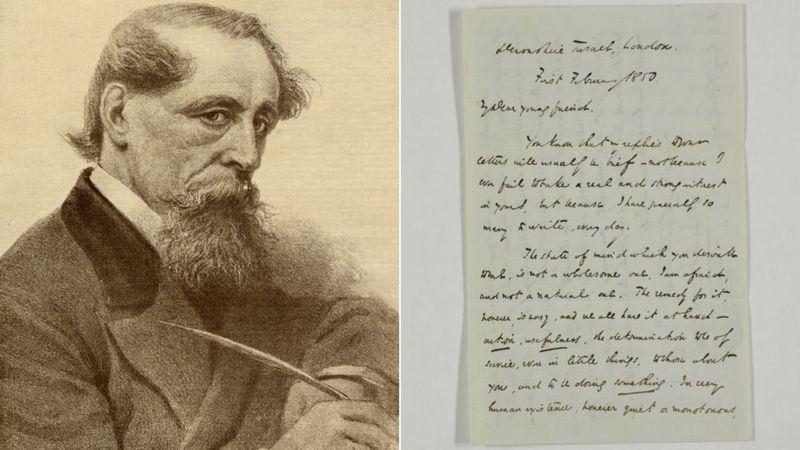 Devonshire Terrace, London.
First February 1850.
My Dear young friend.
You know that my replies to your
letters will usually be brief – not because I
ever fail to take a real and strong interest
in yours, but because I have generally so
many to write, every day.
The state of mind which you describe
to me, is not a wholesome one, I am afraid,
and not a natural one. The remedy for it
however, is easy, and we all have it at hand –
action, usefulness, the determination to be of
service, even in little things, to those about
you, and to be doing something. In every
human existence, however quiet or monotonous,